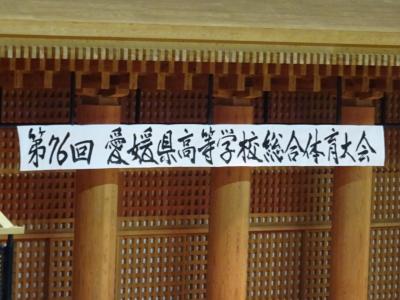 第76回 愛媛県高等学校総合体育大会